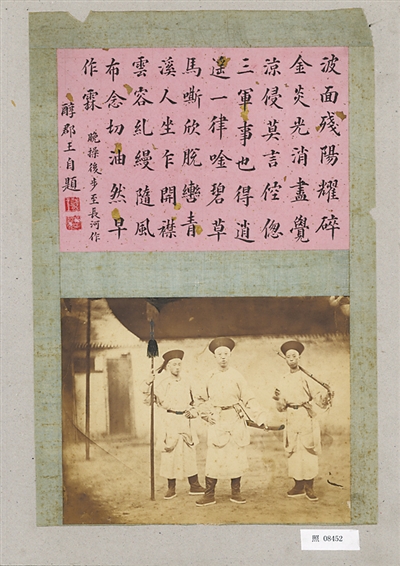 波面殘陽耀碎
金炎光消盡覺
涼侵莫言倥偬
三軍事也得逍
遙一律唫碧草
馬嘶欣脫轡青
溪人坐乍開襟
雲容糺縵隨風
布念切油然早
作霖
晚操後步至長河作
醇郡王自題
照 08452